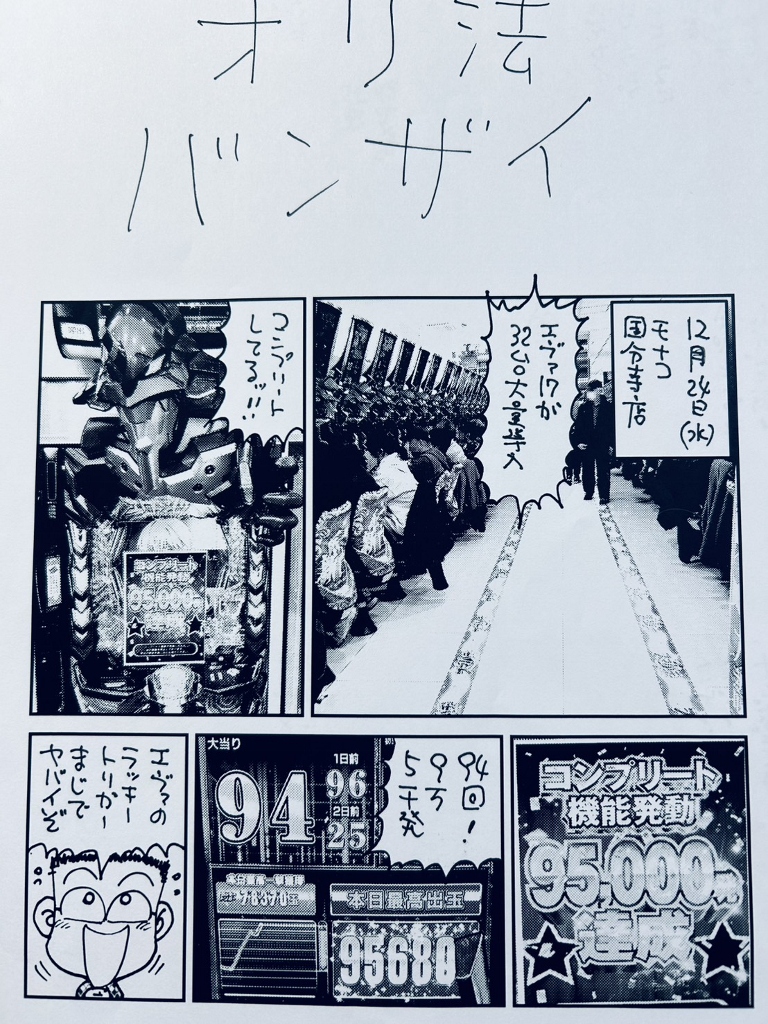 オリ法
バンザイ
12月24日(水)
モナコ
国分寺店
エヴァ17が
32台大量導入
コンプリート
してるッ!!
コンプリート
機能発動
95,000
94回!
9万
5千発
大当り
94
1日前
96
2日前
25
本日最高出玉
95680
コンプリート
機能発動
95,000
達成
エヴァの
ラッキー
トリガー
まじで
ヤバイぞ